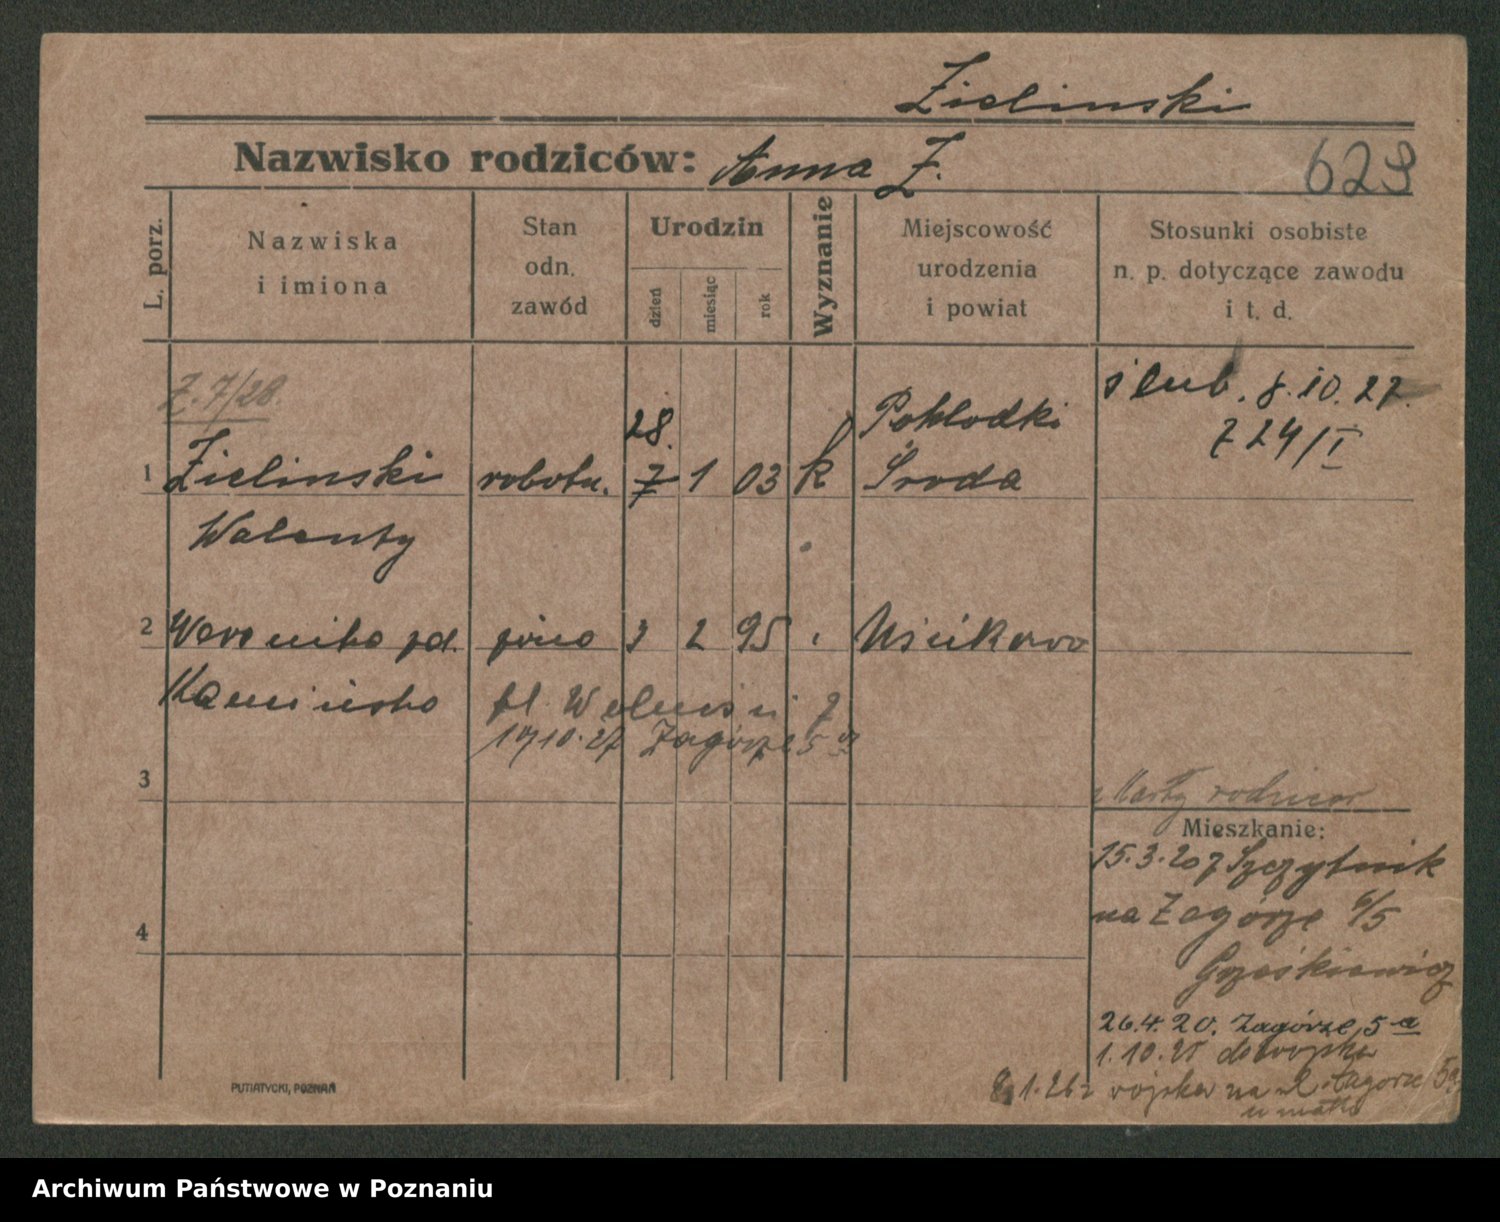 Zielinski
Nazwisko rodziców: Anna Z.
623
L. porz.
Nazwiska
i imiona
Stan
odn.
zawód
Urodzin
dzień
miesiąc
rok
Wyznanie
Miejscowość
urodzenia
i powiat
Stosunki osobiste
n. p. dotyczące zawodu
i t. d.
Z. 7/28.
28.
Pokłodki
ślub. 8.10.27.
Z 24/I
1 Zielinski robotn. 7 1 03 k Środa
Walenty
2 Weronika zd. 3 2 95 Uścikowo
Kamińska
pl. Wolności 7
19 10.27 Zagórze 5 a
3
z Karty rodziców
Mieszkanie:
15.3.20 z Szczytnik
na Zagórze 6/5
Grześkiewicz
4
26.4.20. Zagórze 5 a
1.10.25 do wojska
8.1.26 z wojska na Zagórze 5a
u matki
PUTIATYCKI, POZNAŃ
Archiwum Państwowe w Poznaniu